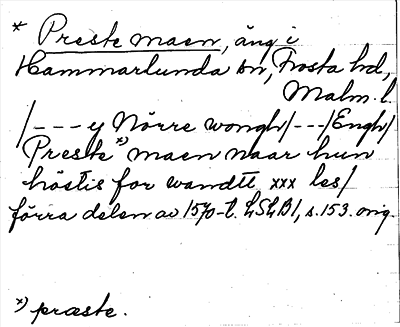 * Preste maen, äng i
Hammarlunda sn, Frosta hd,
Malm. l.
/--- y Nörre wongh/---/Engh/
Preste x) maen naar hun
höstis for wandtt xxx les/
förra delen av 1570-t. LSLB1, s. 153. orig.
x) præste.